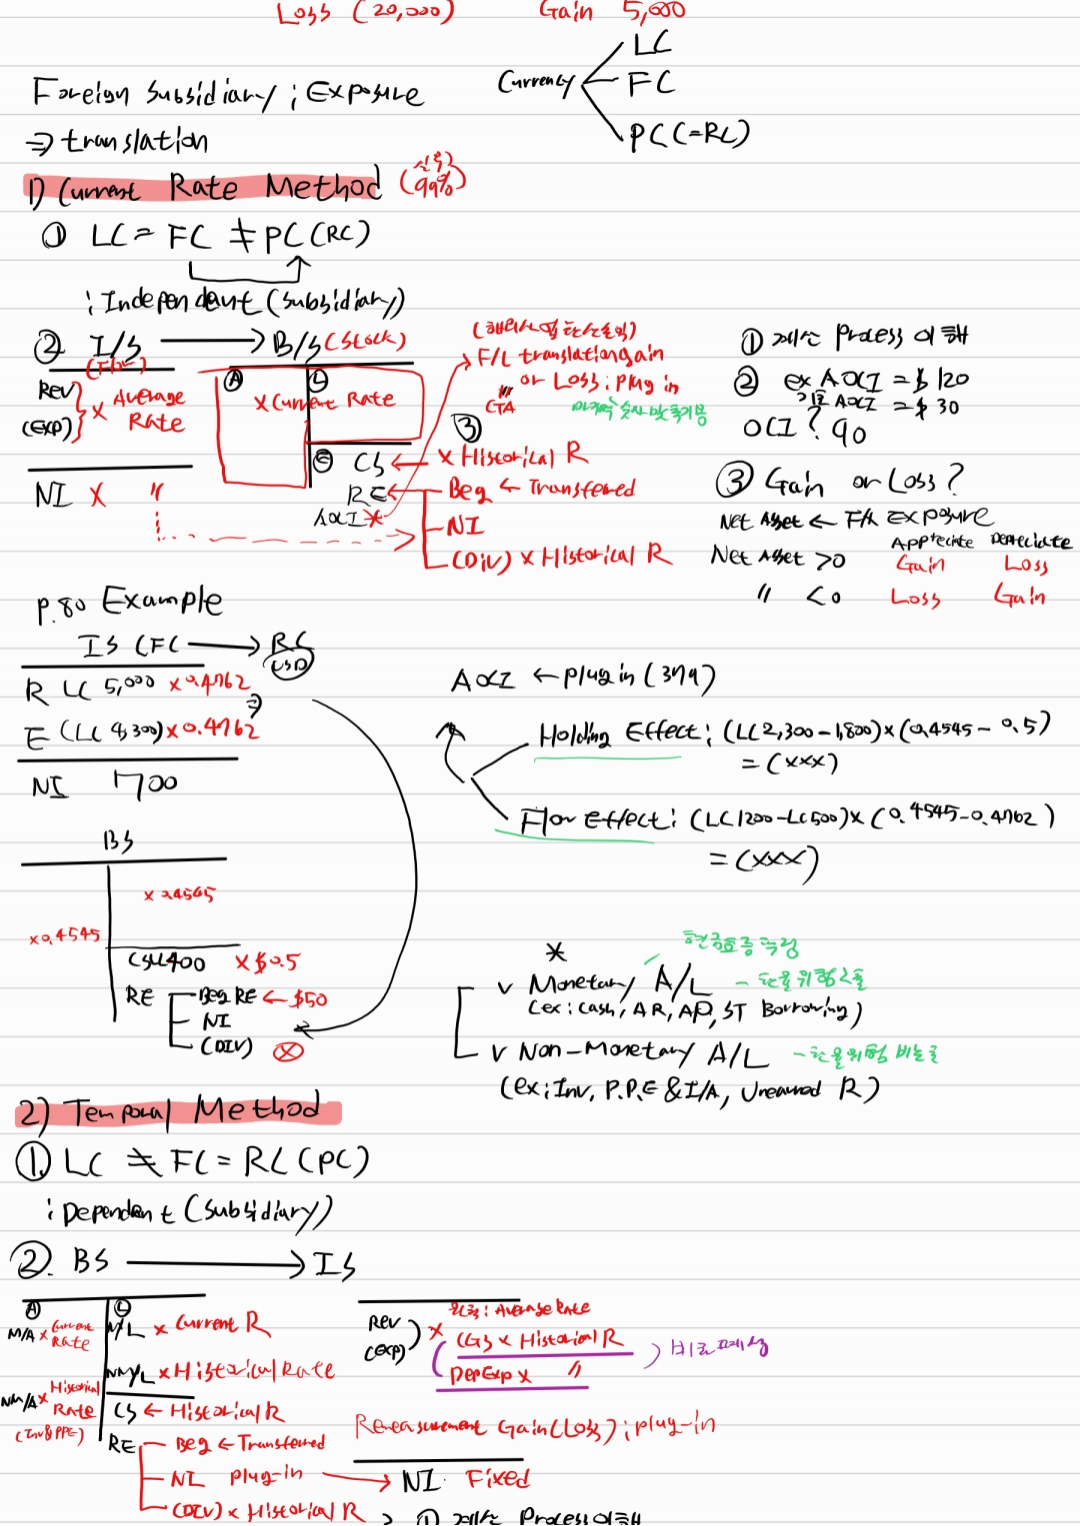 Loss (20,000)
Gain 5,000
Foreign Subsidiary ; Exposure
⇒ translation
Currency
LC
FC
PC (=RC)
1) Current Rate Method
(99%)
① LC = FC ≠ PC (RC)
; Independent (Subsidiary)
② I/S → B/S (Stock)
Rev
(EXP)
× Average Rate
NI × 〃
Ⓐ
Ⓛ
× Current Rate
Ⓔ CS ← × Historical R
RE
AOCI *
Beg ← Transferred
NI
(Div) × Historical R
F/L translation gain
or Loss ; plug in
CTA
③
① 계산 Process 이해
② ex AOCI = $ 120
기초 AOCI = $ 30
OCI ? 90
③ Gain or Loss ?
Net Asset ← F/X Exposure
Appreciate Depreciate
Net Asset >0 Gain Loss
〃 <0 Loss Gain
p.80 Example
IS (FC → RC
USD
R LC 5,000 × 0.4762
E (LC 4,300) × 0.4762
NI 700
BS
× 0.4545
× 0.4545
CS LC 400 × $0.5
RE
Beg RE ← $50
NI
(DIV) ⓧ
AOCI ← plug in (379)
Holding Effect ; (LC 2,300 - 1,800) × (0.4545 - 0.5)
= (xxx)
Flow effect ; (LC 1200 - LC 500) × (0.4545 - 0.4762)
= (xxx)
*
현금흐름 측정
v Monetary A/L - 환율위험 노출
(ex ; cash, AR, AP, ST Borrowing)
v Non-Monetary A/L - 환율위험 비노출
(ex ; Inv, P.P.E & I/A, Unearned R)
2) Temporal Method
① LC ≠ FC = RC (PC)
; Dependent (Subsidiary)
② BS → IS
Ⓐ
Ⓛ
M/A × Current Rate
M/L × Current R
NM/L × Historical Rate
NM/A × Historical Rate
(Inv & PPE)
CS ← Historical R
RE
Beg ← Transferred
NI plug-in → NI Fixed
(DIV) × Historical R
Rev
(EXP)
×
원칙 : Average Rate
CGS × Historical R
Dep Exp × 〃
Remeasurement Gain (Loss) ; plug-in
① 계산 Process 이해